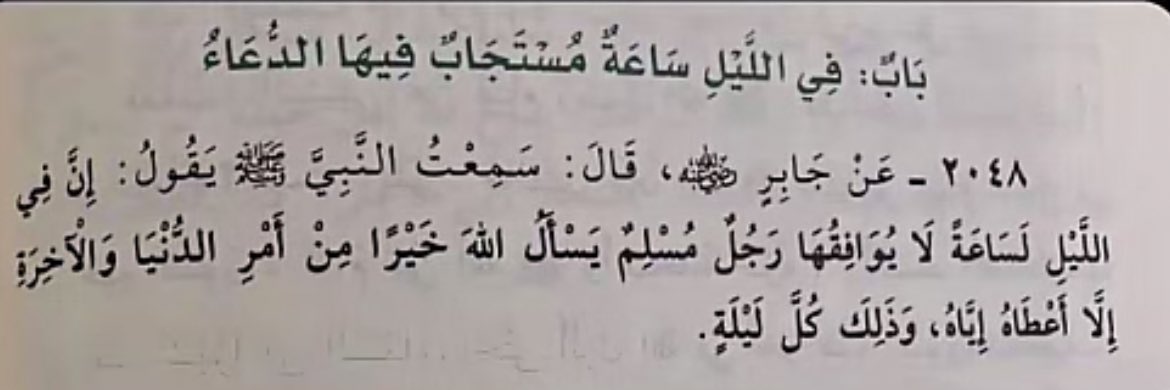 بَابٌ: فِي اللَّيْلِ سَاعَةٌ مُسْتَجَابٌ فِيهَا الدُّعَاءُ
٢٠٤٨ - عَنْ جَابِرٍ رضي الله عنه، قَالَ: سَمِعْتُ النَّبِيَّ ﷺ يَقُولُ: إِنَّ فِي
اللَّيْلِ لَسَاعَةً لَا يُوَافِقُهَا رَجُلٌ مُسْلِمٌ يَسْأَلُ اللهَ خَيْرًا مِنْ أَمْرِ الدُّنْيَا وَالْآخِرَةِ
إِلَّا أَعْطَاهُ إِيَّاهُ، وَذَلِكَ كُلَّ لَيْلَةٍ.